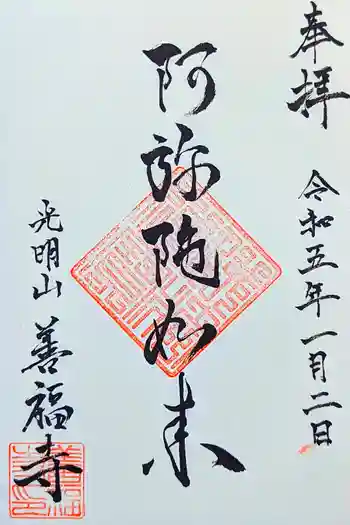 奉拝
令和五年一月二日
阿弥陀如来
光明山
善福寺